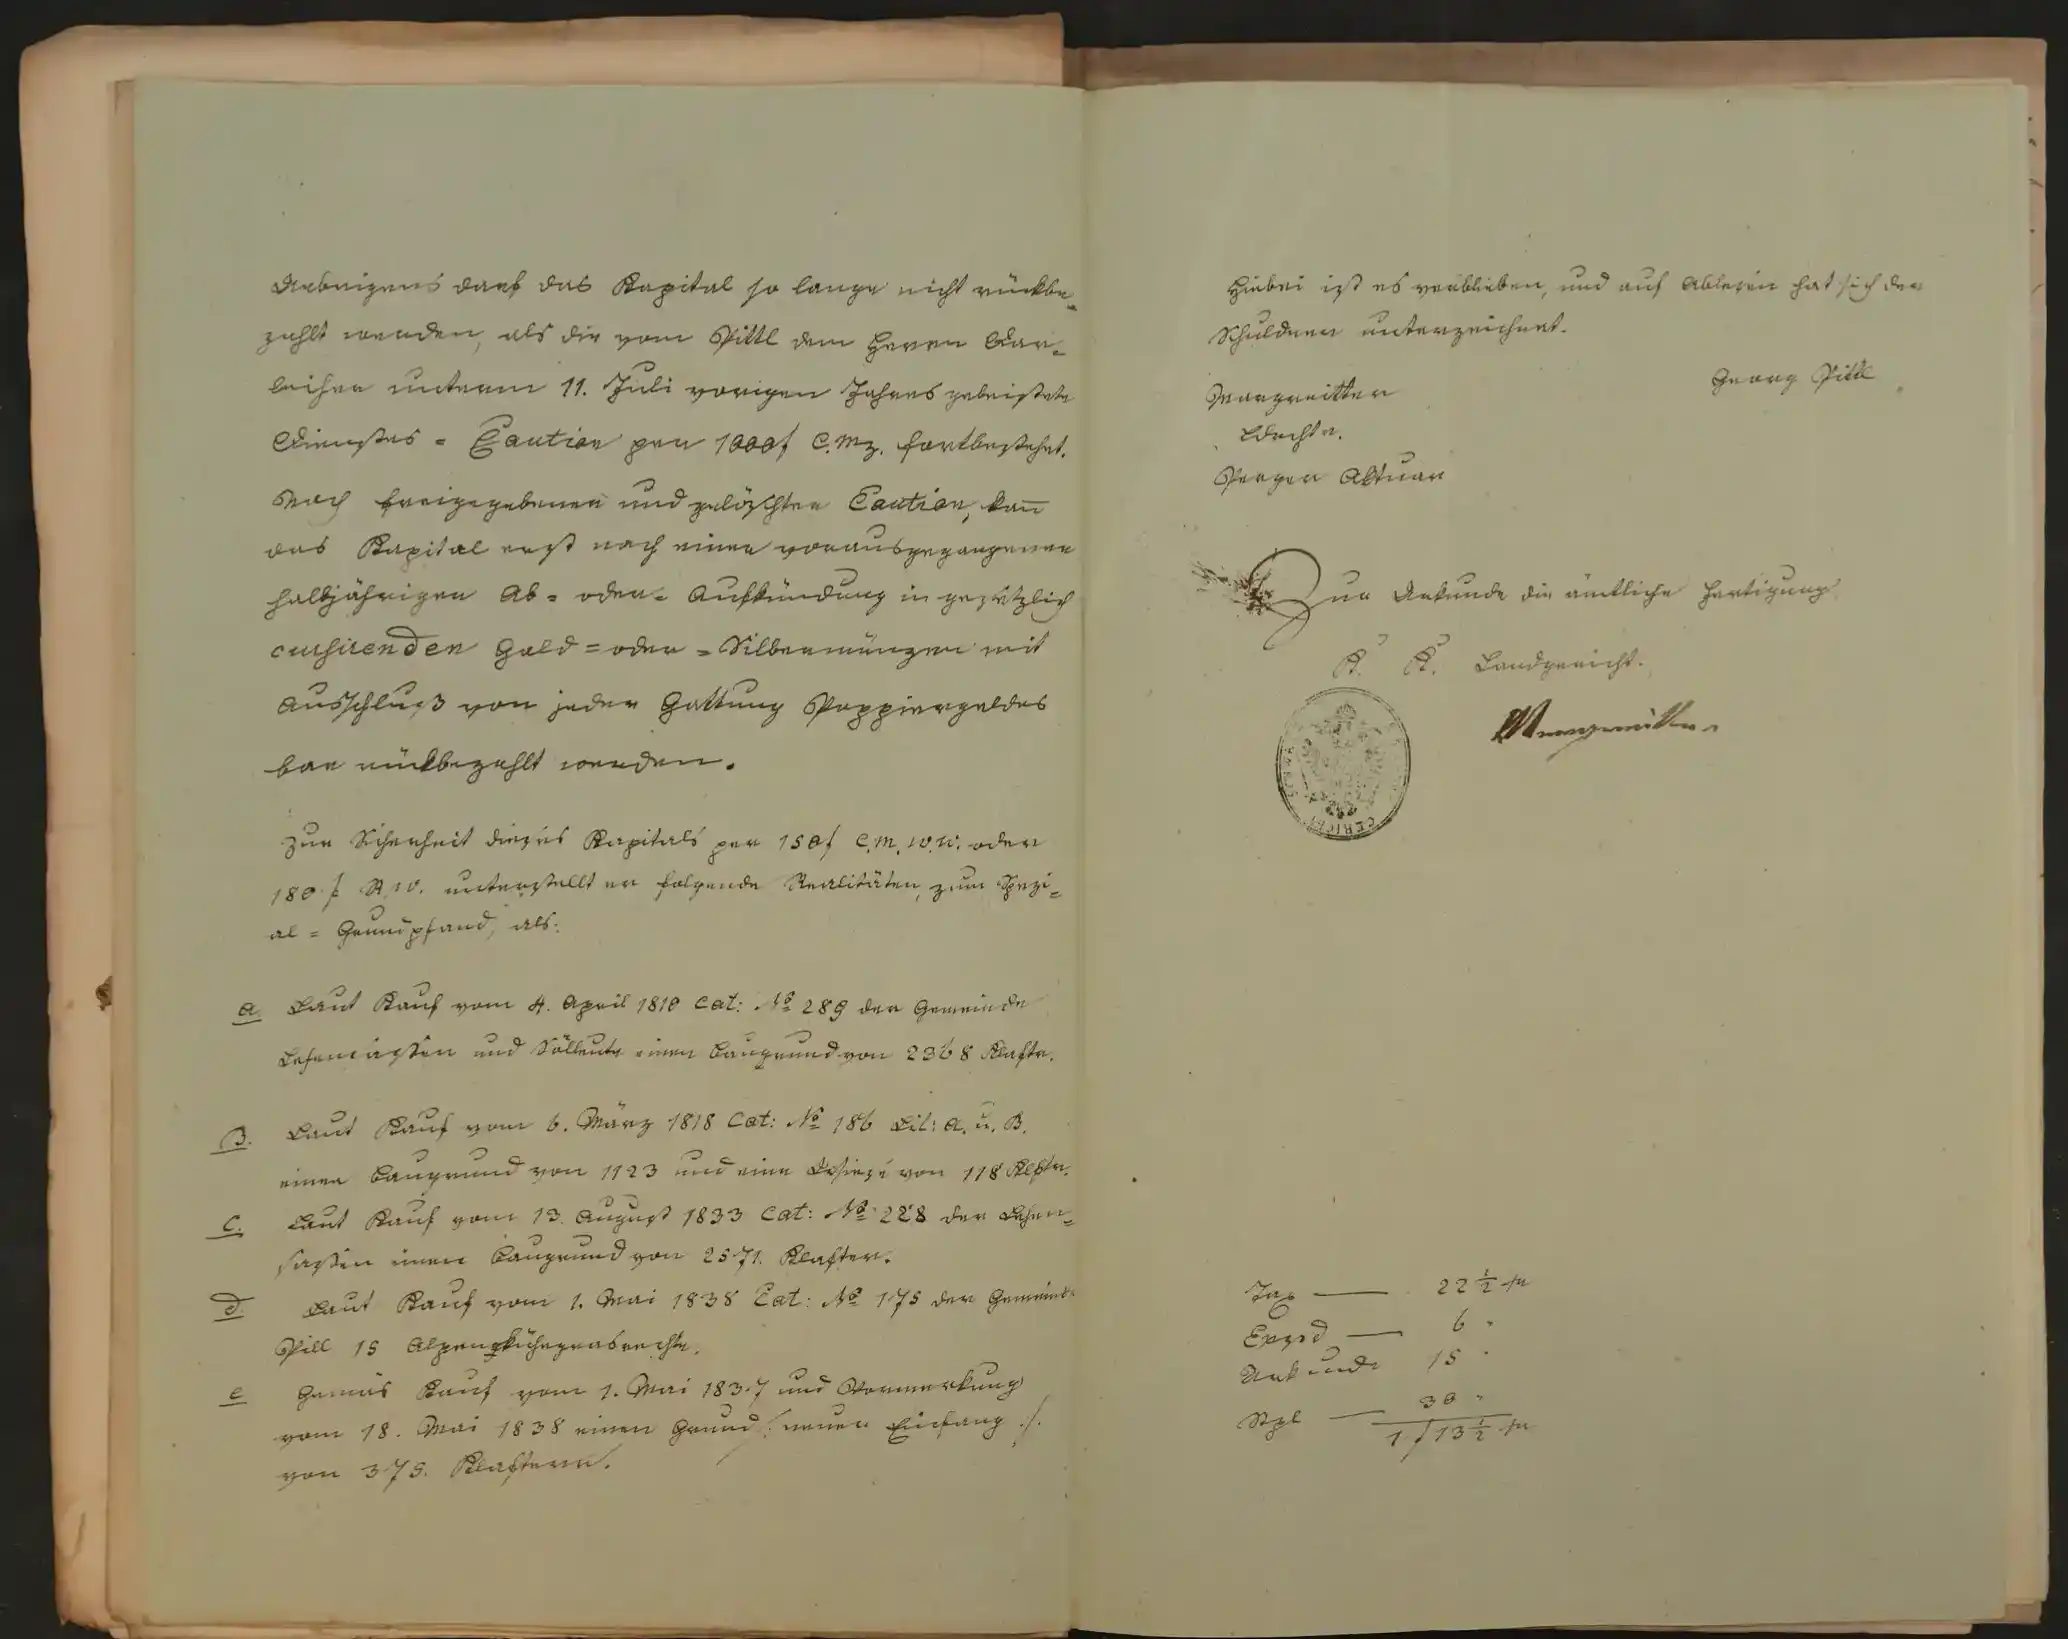 Uebrigens darf das Kapital so lange nicht rückbe-
zahlt werden, als die vom Pittl dem Herrn Dar-
leiher unterm 11. Juli vorigen Jahres geleistete
Dienstes- Caution per 1000f C.Mz. fortbestehet.
Nach freigegebener und gelöschter Caution, kañ
das Kapital erst nach einer vorausgegangenen
halbjährigen Ab- oder- Aufkündung in gesetzlich
cursirenden Gold- oder -Silbermünzen mit
Ausschluß von jeder Gattung Pappiergeldes
bar rückbezahlt werden.
Zur Sicherheit dieses Kapitals per 150f C.M.W.W. oder
180 f R.W. unterstellt er folgende Realitäten, zum Spezi-
al- Grundpfand, als:
a. Laut Kauf vom 4. April 1810 Cat: No 289 der Gemeinde
Lehensassen und Söllleute einen Baugrund von 2368 Klaftr.
B. Laut Kauf vom 6. März 1818 Cat: No 186 Lit: A. u. B.
einen Baugrund von 1123 und eine von 118 Klftr.
C. Laut Kauf vom 13. August 1833 Cat: No 228 der Lehen-
sassen einen Baugrund von 2571. Klafter.
d. Laut Kauf vom 1. Mai 1838 Cat: No 175 der Gemeinde
Pill 15 Alpenskühegrasrechte.
e Gemäs Kauf vom 1. Mai 1837 und Vormerkung
vom 18. Mai 1838 einen Grund /: neuen Einfang :/
von 375. Klaftern.
Hiebei ist es verblieben, und auf Ablesen hat sich der
Schuldner unterzeichnet.
Georg Pittl
Margreitter
Ldrchtr.
Perger Aktuar
Zur Urkunde die ämtliche Fertigung
K. K. Landgericht.
Margreitter
GERICHT
Tax — 22 1/2 kr
Expd — 6 "
Urkunde 15 "
Stpl — 30 "
1 f 13 1/2 kr